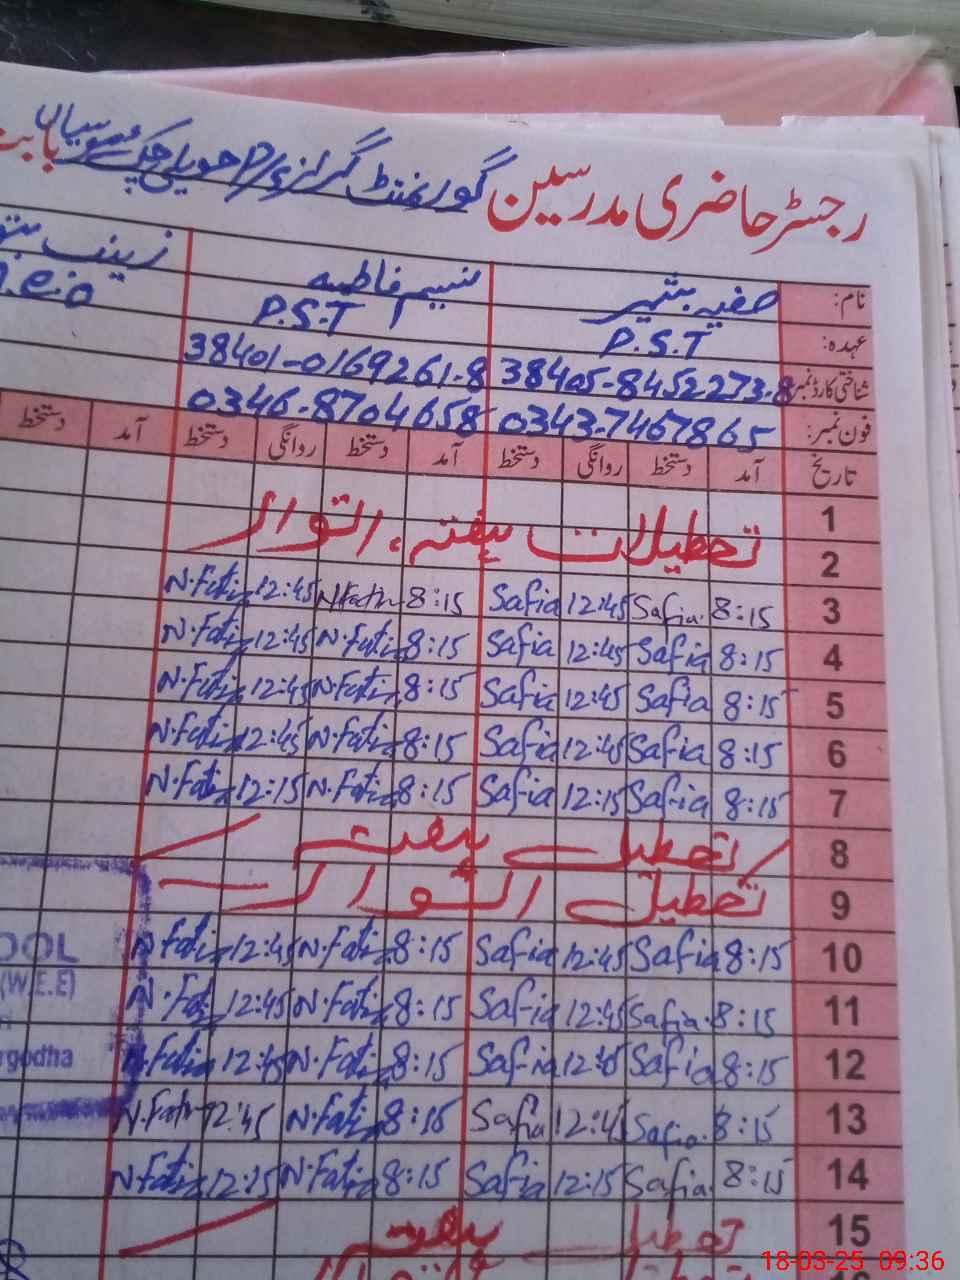 رجسٹر حاضری مدرسین گورنمنٹ گرلز P/S حویلی بابت
نام: صفیہ بشیر نسیم فاطمہ زینب
عہدہ: P.S.T P.S.T
شناختی کارڈ نمبر 38405-8452273-8 38401-0169261-8
فون نمبر: 0343-7467865 0346-8704658
تاریخ آمد دستخط روانگی دستخط آمد دستخط روانگی دستخط آمد دستخط
1
تعطیلات ہفتہ، اتوار
2
3 8:15 Safia 12:45 Safia 8:15 N.Fatima 12:45 N.Fatima
4 8:15 Safia 12:45 Safia 8:15 N.Fatima 12:45 N.Fatima
5 8:15 Safia 12:45 Safia 8:15 N.Fatima 12:45 N.Fatima
6 8:15 Safia 12:45 Safia 8:15 N.Fatima 12:45 N.Fatima
7 8:15 Safia 12:15 Safia 8:15 N.Fatima 12:15 N.Fatima
8 تعطیل ہفتہ
9 تعطیل اتوار
10 8:15 Safia 12:45 Safia 8:15 N.Fatima 12:45 N.Fatima
11 8:15 Safia 12:45 Safia 8:15 N.Fatima 12:45 N.Fat
12 8:15 Safia 12:45 Safia 8:15 N.Fatima 12:45 N.Fatima
13 8:15 Safia 12:45 Safia 8:15 N.Fatima 12:45 N.Fatima
14 8:15 Safia 12:15 Safia 8:15 N.Fatima 12:15 N.Fatima
15 تعطیل ہفتہ
OOL
(W.E.E)
rgodha
18-03-25 09:36